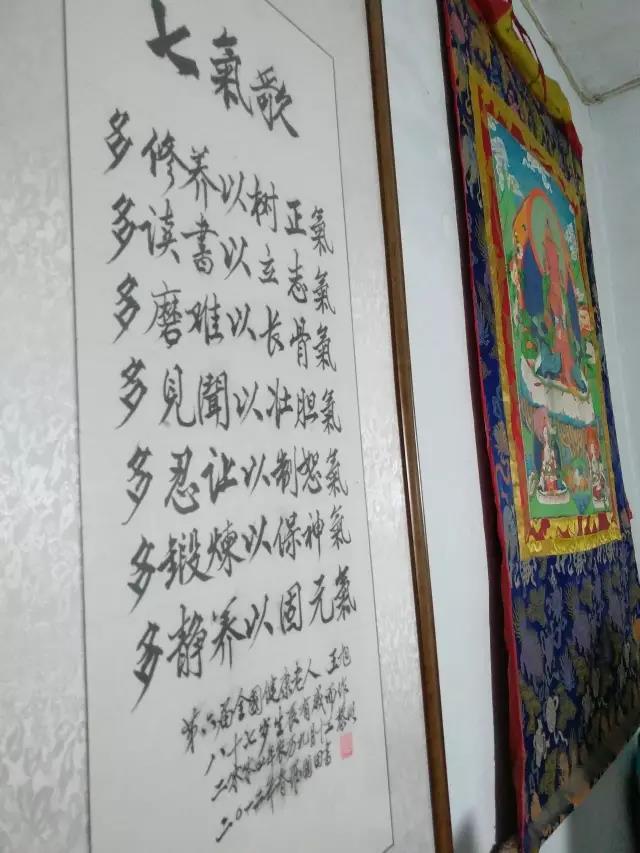 七氣歌
多修养以树正氣
多读書以立志氣
多磨难以长骨氣
多見聞以壮胆氣
多忍让以制怒氣
多鍛煉以保神氣
多静养以固元氣
第六届全國健康老人王旭
八十七岁生辰有感而作
二零零四年农历九月十二
二〇一二年